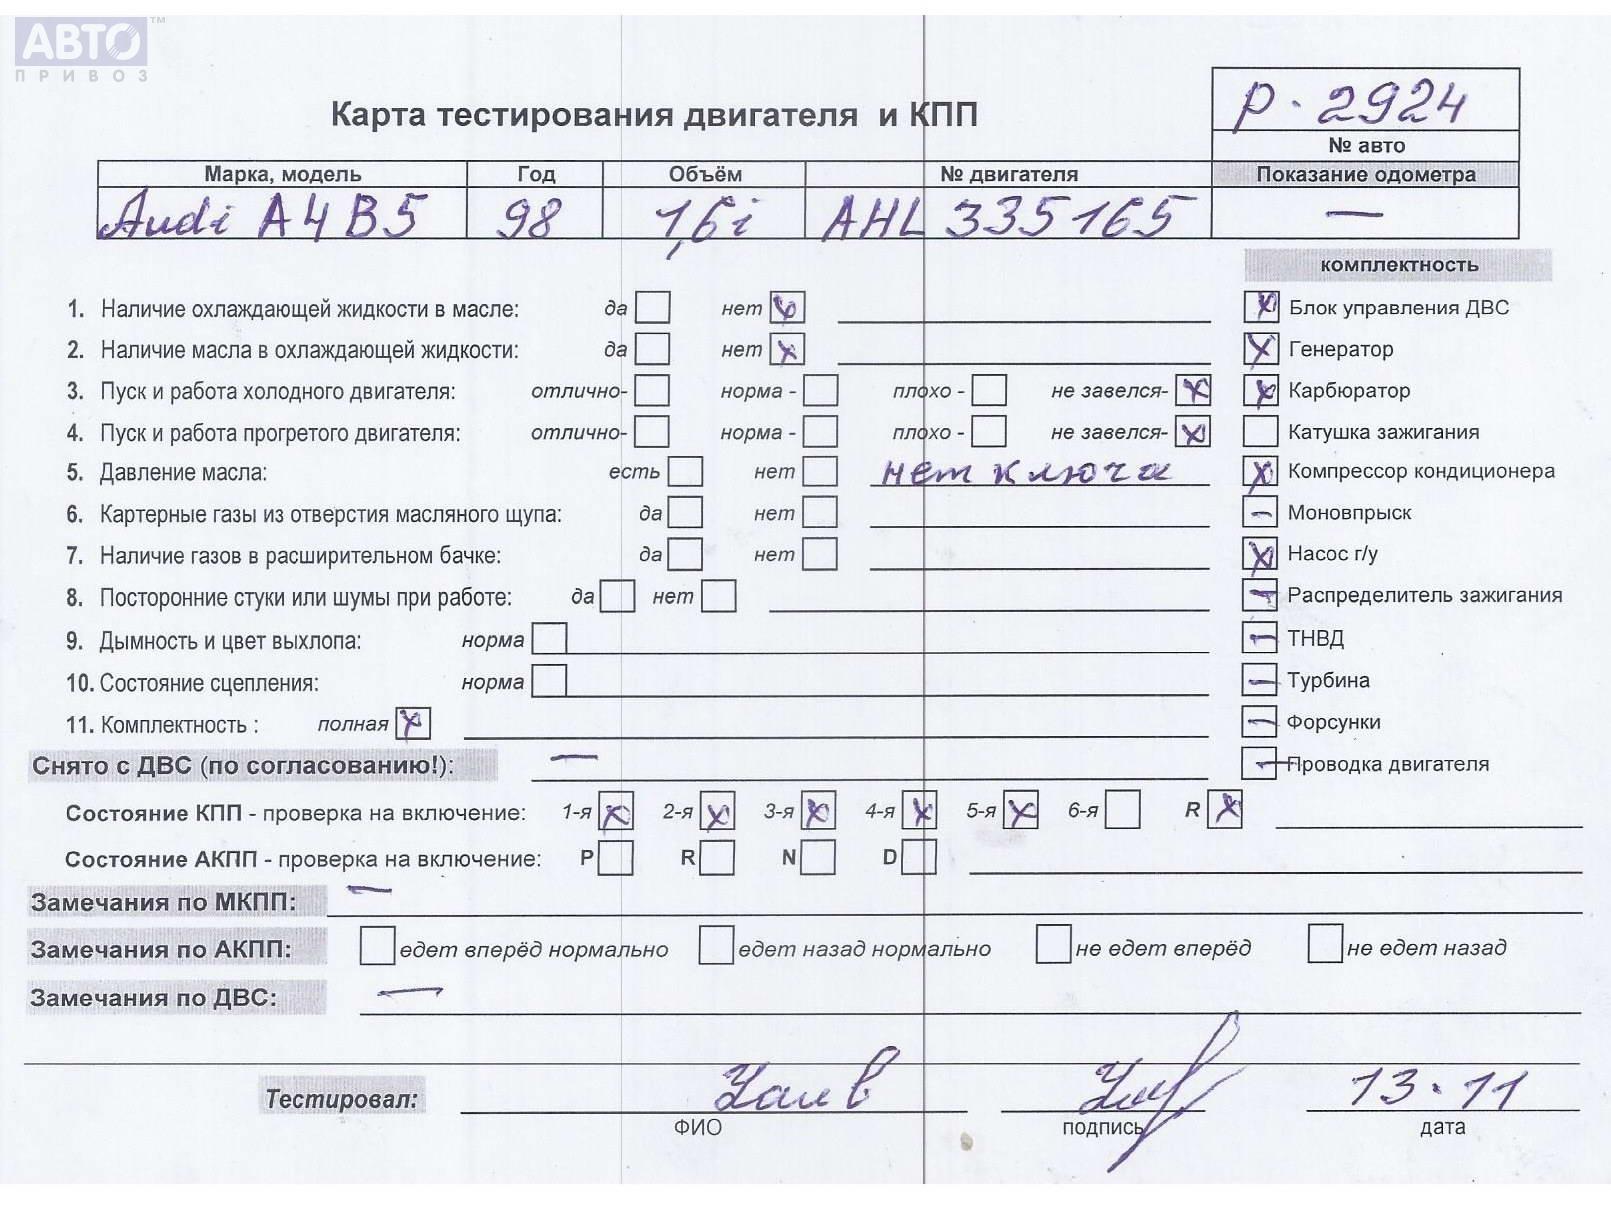 АВТО™
ПРИВОЗ
Карта тестирования двигателя и КПП
р - 2924
№ авто
Марка, модель Год Объём № двигателя Показание одометра
Audi A4 B5 98 1,6i AHL 335165 —
комплектность
1. Наличие охлаждающей жидкости в масле: да нет x Блок управления ДВС
2. Наличие масла в охлаждающей жидкости: да нет x Генератор
3. Пуск и работа холодного двигателя: отлично- норма - плохо - не завелся- x Карбюратор
4. Пуск и работа прогретого двигателя: отлично- норма - плохо - не завелся- x Катушка зажигания
5. Давление масла: есть нет нет ключа x Компрессор кондиционера
6. Картерные газы из отверстия масляного щупа: да нет — Моновпрыск
7. Наличие газов в расширительном бачке: да нет x Насос г/у
8. Посторонние стуки или шумы при работе: да нет — Распределитель зажигания
9. Дымность и цвет выхлопа: норма — ТНВД
10. Состояние сцепления: норма — Турбина
11. Комплектность : полная x — Форсунки
Снято с ДВС (по согласованию!): — — Проводка двигателя
Состояние КПП - проверка на включение: 1-я x 2-я x 3-я x 4-я x 5-я x 6-я R x
Состояние АКПП - проверка на включение: P R N D
Замечания по МКПП: —
Замечания по АКПП: едет вперёд нормально едет назад нормально не едет вперёд не едет назад
Замечания по ДВС: —
Тестировал: 13.11
ФИО подпись дата